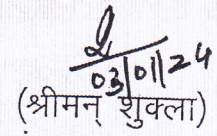 03/01/24
(श्रीमन् शुक्ला)